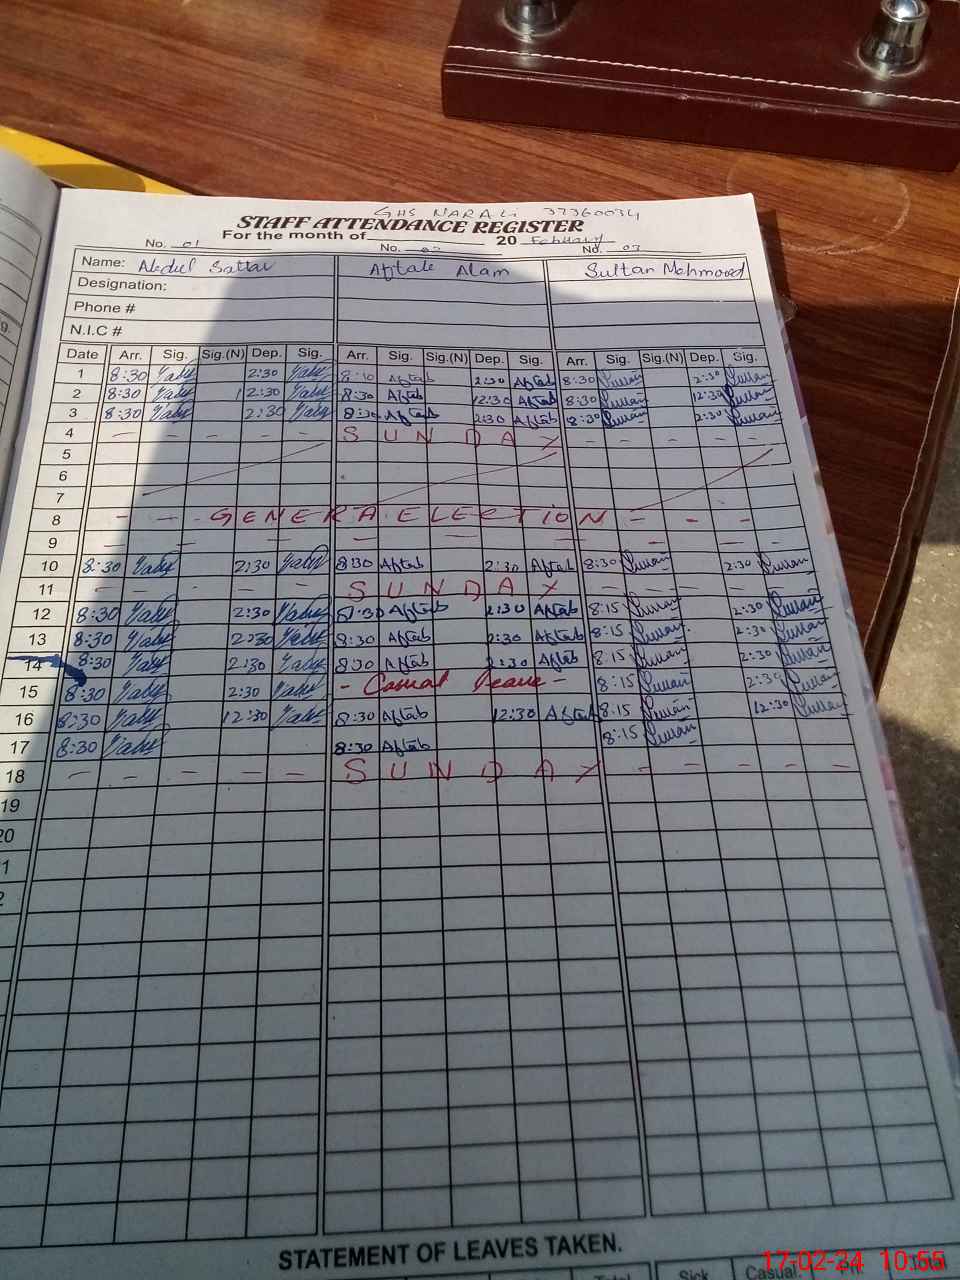 GHS NARALi 37360034
STAFF ATTENDANCE REGISTER
For the month of 20 February
No. 01 No. 02 No. 03
Name: Abdul Sattar Aftab Alam Sultan Mehmood
Designation:
Phone #
N.I.C #
Date Arr. Sig. Sig.(N) Dep. Sig. Arr. Sig. Sig.(N) Dep. Sig. Arr. Sig. Sig.(N) Dep. Sig.
1 8:30 2:30 Aftab 2:30 Aftab 8:30 2:30
2 8:30 12:30 8:30 Aftab 12:30 Aftab 8:30 12:30
3 8:30 2:30 8:30 Aftab 2:30 Aftab 8:30 2:30
4 - - - - - SUNDAY - - - - -
5
6
7
8 - - GENERAL ELECTION - - -
9 - - - - - - - -
10 8:30 2:30 8:30 Aftab 2:30 Aftab 8:30 2:30
11 - - - - - SUNDAY - - - - -
12 8:30 2:30 8:30 Aftab 2:30 Aftab 8:15 2:30
13 8:30 2:30 8:30 Aftab 2:30 Aftab 8:15 2:30
14 8:30 2:30 8:30 Aftab 2:30 Aftab 8:15 2:30
15 8:30 2:30 - Casual leave - 8:15 2:30
16 8:30 12:30 8:30 Aftab 12:30 Aftab 8:15 12:30
17 8:30 8:30 Aftab 8:15
18 - - - - - SUNDAY - - - - -
19
20
STATEMENT OF LEAVES TAKEN.
Total Sick Casual.
17-02-24 10:55